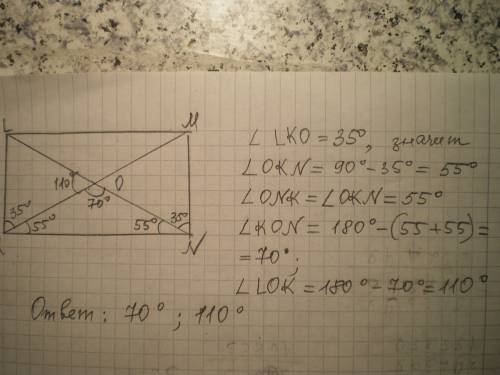 L M
110° O
70°
35° 35°
55° 55°
N
∠LKO = 35°, значит
∠OKN = 90° - 35° = 55°
∠ONK = ∠OKN = 55°
∠KON = 180° - (55 + 55) =
= 70°;
∠LOK = 180° - 70° = 110°
Ответ: 70°; 110°